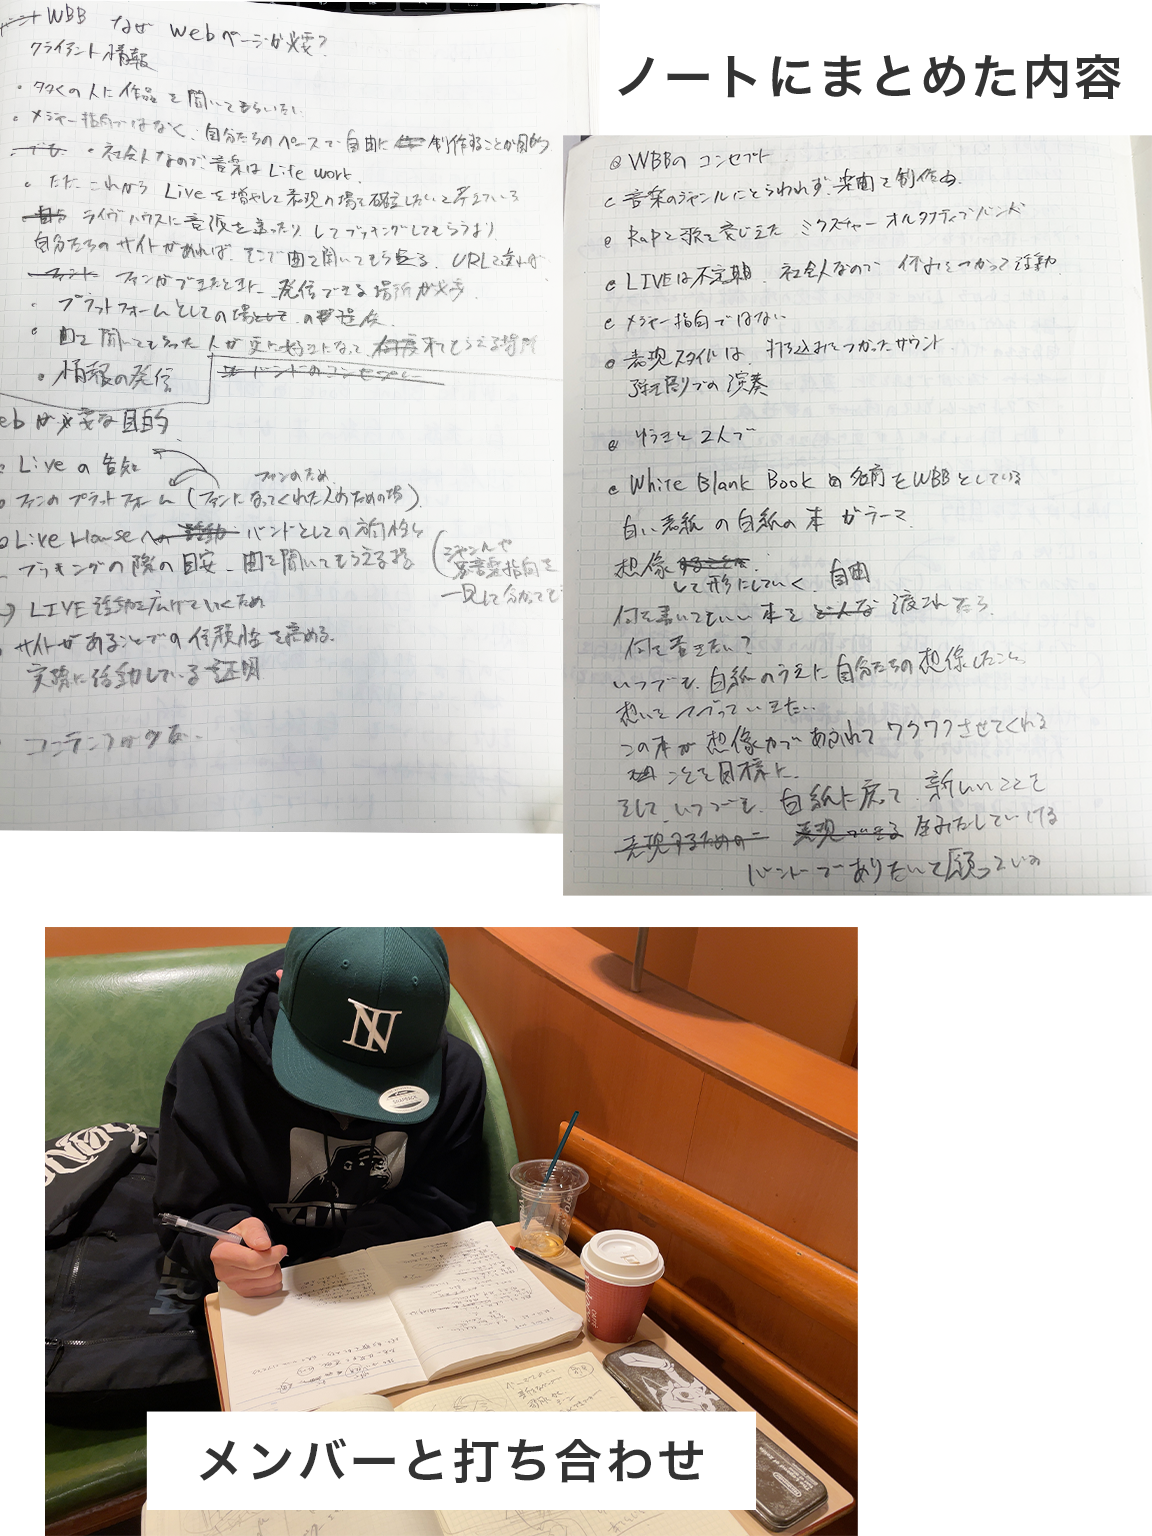 ノートにまとめた内容
WBB なぜ Webページが必要?
クライアント情報
・多くの人に作品を聞いてもらいたい
・メジャー指向ではなく、自分たちのペースで自由に制作することが目的
・社会人なので、音楽は Life work.
・ただ、これから Liveを増やして表現の場を確立したいと考えている
ライブハウスに音源を送ったりしてブッキングしてもらうより
自分たちのサイトがあれば、そこで曲を聞いてもらえる、URLを送れば
ファンができたときに、発信できる場所が必要.
・プラットフォームとしての場の提供
・曲を聞いてもらった人が更に好きになって来てもらえる場所
・情報の発信
ebが必要な目的
Live の告知
ファンのため
ファンのプラットフォーム (ファンになってくれた人のための場)
Live Houseへの バンドとしての方向性を
ブッキングの際の目安 - 曲を聞いてもらえる場
(ジャンルや
音楽指向を
一見して分かっても
→ LIVE 活動を広げていくため
サイトがあることでの信頼性を高める.
実際に活動している証明
コンテンツが少ない.
◎ WBBの コンセプト
音楽のジャンルにとらわれず、楽曲を制作
Rapと歌を交じえた ミクスチャー オルタナティブバンド
LIVEは不定期 社会人なので 休みをつかって活動
メジャー指向ではない
表現スタイルは、打ち込みをつかったサウンド
弾き語りでの演奏
ゆうきと2人で
White Blank Book の名前をWBBとしている
白い表紙の白紙の本がテーマ
想像
して形にしていく、自由
何を書いてもいい本を どんな 渡されたら、
何を書きたい?
いつでも、白紙のうえに自分たちの想像したこと、
想いをつづっていきたい
この本が想像力であふれてワクワクさせてくれる
ことを目標に、
そして、いつでも、白紙に戻って、新しいことを
表現するための 表現できる 生み出していける
バンドでありたいと願っている
N
メンバーと打ち合わせ